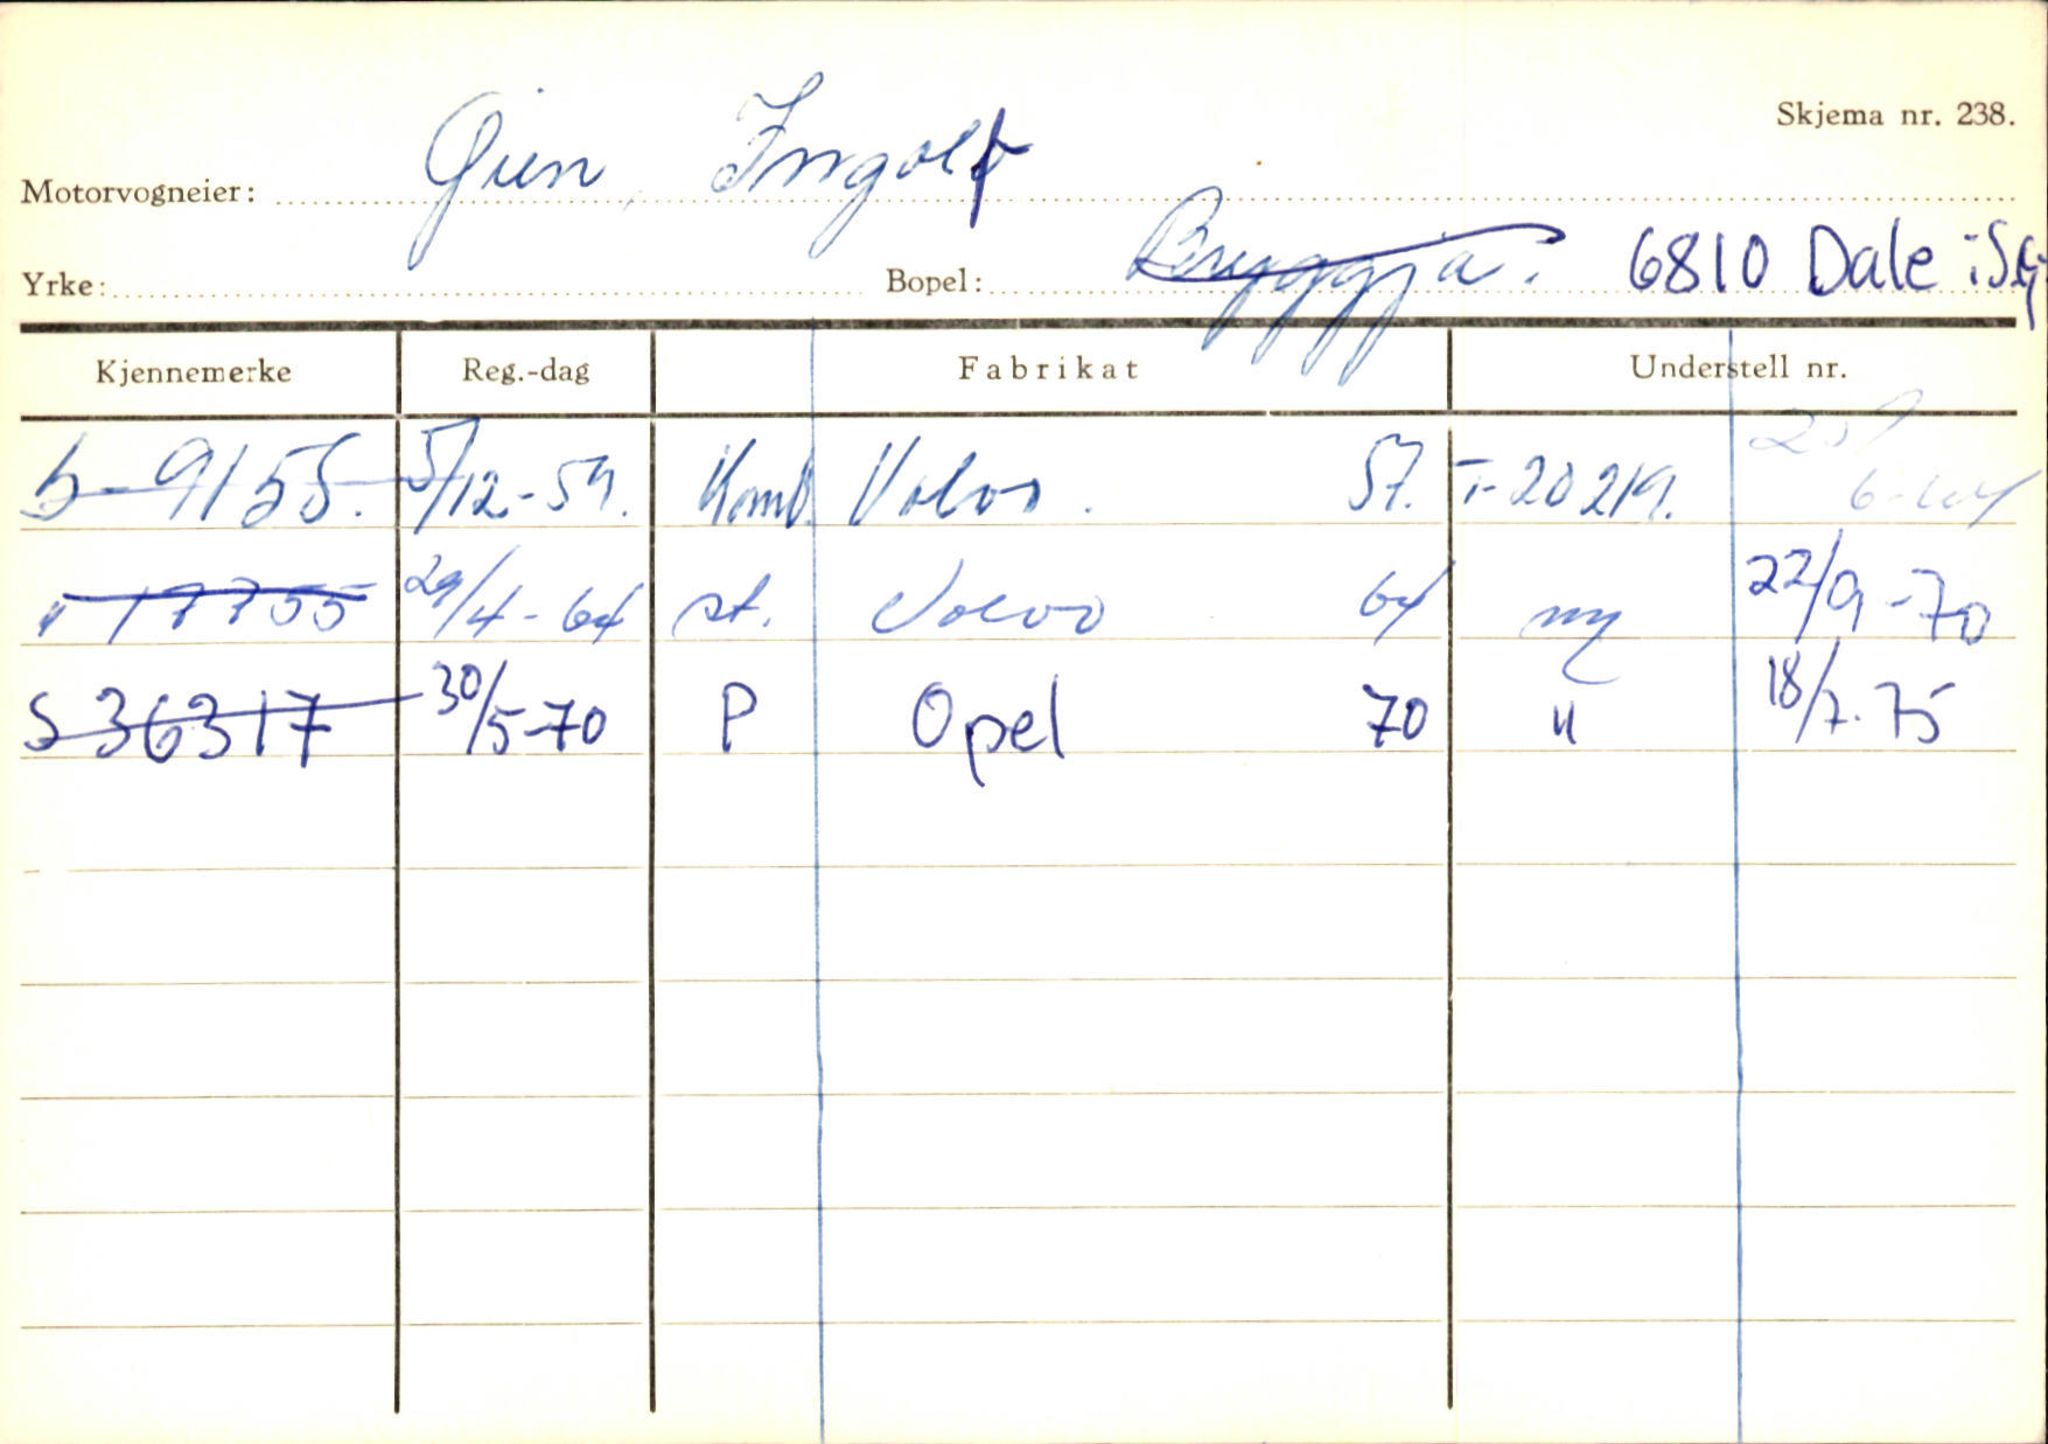 Skjema nr. 238.
Motorvogneier: Øien, Ingolf
Yrke: Bopel: Bryggja. 6810 Dale i Sfj
Kjennemerke Reg.-dag Fabrikat Understell nr.
S-9155. 5/12-59. Komb. Volvo. 57. T-20219. 6-64
" 17755 29/4-64 st. Volvo 64 ny 22/9-70
S 36317 30/5-70 P Opel 70 " 18/7-75